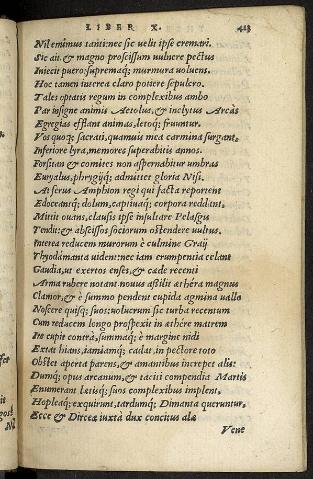 LIBER X. 423
Nil emimus tanti: nec sic uelis ipse cremari.
Sic ait, & magno proscissum uulnere pectus
Iniecit puero: supremaq; murmura uoluens.
Hoc tamen interea claro potiere sepulcro.
Tales optatis regum in complexibus ambo
Par insigne animis Aetolus, & inclytus Arcas
Egregias efflant animas, letoq; fruuntur.
Vos quoq; sacrati, quamuis mea carmina surgant,
Inferiore lyra, memores superabitis annos.
Forsitan & comites non aspernabitur umbras
Euryalus, phrygijq; admittet gloria Nisi.
At ferus Amphion regi qui facta reportent
Edoceantq; dolum, captiuaq; corpora reddant,
Mittit ouans, clausis ipse insultare Pelasgis
Tendit: & abscissos sociorum ostendere uultus.
Interea reducem murorum è culmine Graij
Thyodamanta uident: nec iam erumpentia celant
Gaudia, ut exertos enses, & cæde recenti
Arma rubere notant. nouus astilit æthéra magnus
Clamor, & è summo pendent cupida agmina uallo
Noscere quisq; suos: uolucrum sic turba recentum
Cum reducem longo prospexit in æthere matrem
Ire cupit contrà, summaq; è margine nidi
Extat hians, iamiamq; cadat, in pectore toto
Obstet aperta parens, & amantibus increpet alis:
Dumq; opus arcanum, & taciti compendia Martis
Enumerant lætisq; suos complexibus implent,
Hopleaq; exquirunt, tardumq; Dimanta queruntur,
Ecce & Dirceæ iuxtà dux concitus alæ
Vene